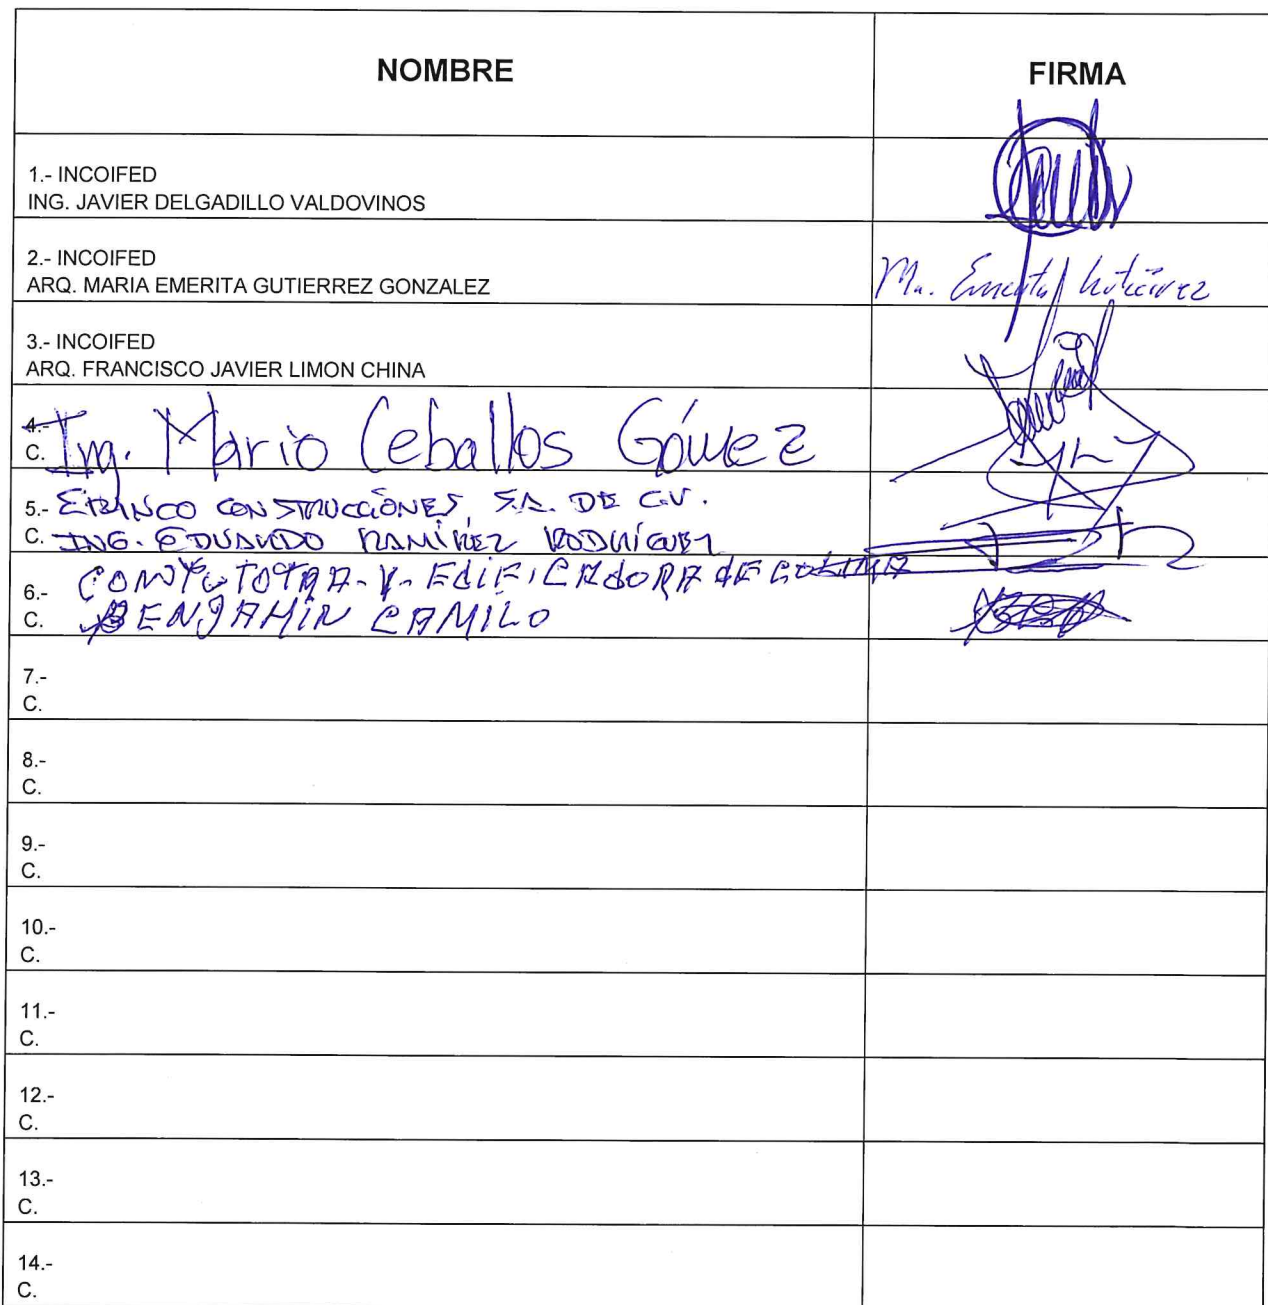 NOMBRE
FIRMA
1.- INCOIFED
ING. JAVIER DELGADILLO VALDOVINOS
2.- INCOIFED
ARQ. MARIA EMERITA GUTIERREZ GONZALEZ
Ma. Emerita Gutiérrez
3.- INCOIFED
ARQ. FRANCISCO JAVIER LIMON CHINA
4.-
C. Ing. Mario Ceballos Gómez
5.- CONSTRUCCIONES, S.A. DE C.V.
C. ING. EDUARDO RAMÍREZ RODRÍGUEZ
6.- Y EdIFICAdORA dE COLIMA
C. BENJAMIN CAMILO
7.-
C.
8.-
C.
9.-
C.
10.-
C.
11.-
C.
12.-
C.
13.-
C.
14.-
C.